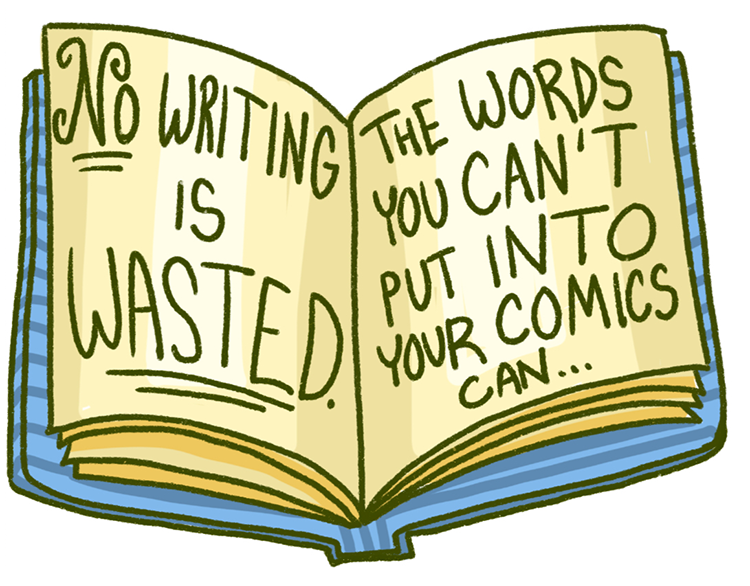 No WRITING
IS
WASTED.
THE WORDS
YOU CAN'T
PUT INTO
YOUR COMICS
CAN...